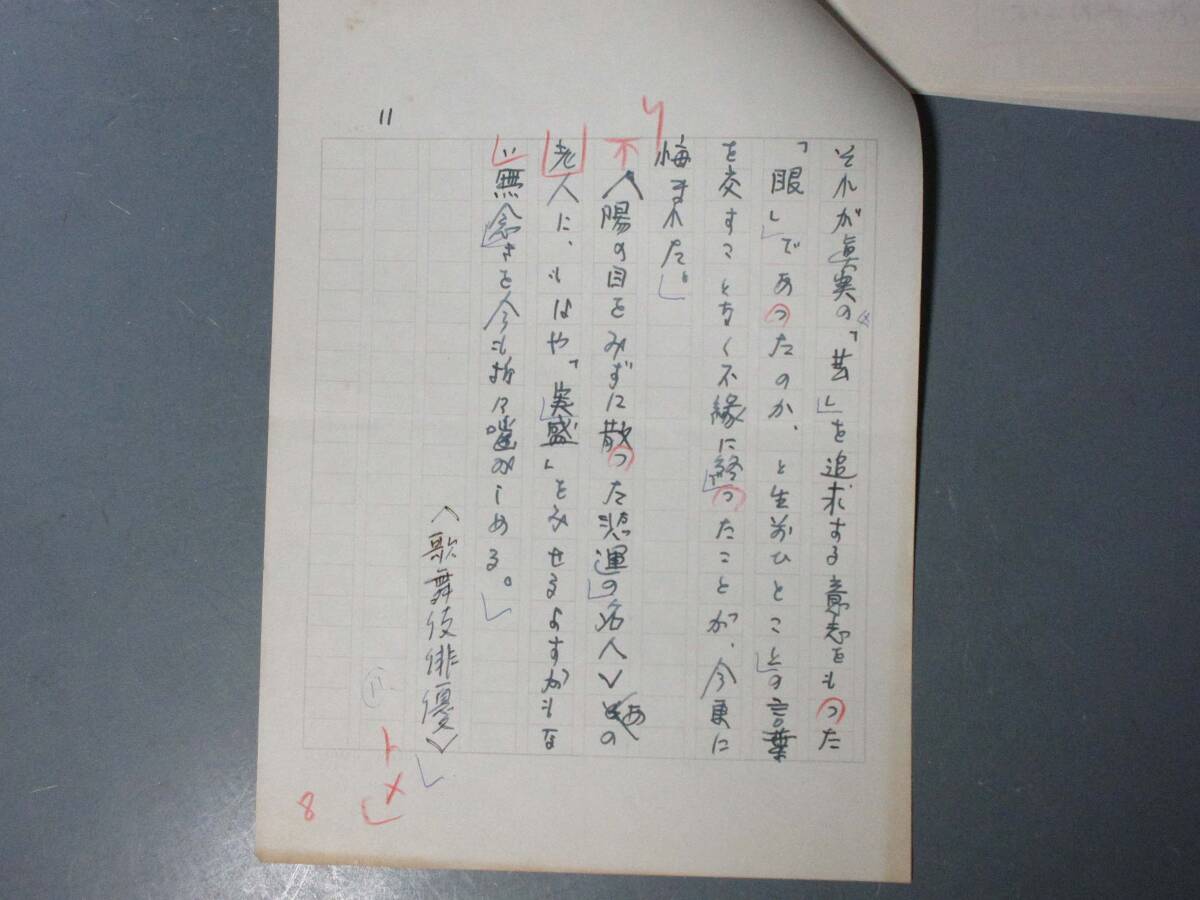 それが真実の「芸」を追求する意志をもった
「眼」であったのか、と生前ひとことの言葉
を交すことなく不縁に終ったことが、今更に
悔まれた。
〈陽の目をみずに散った悲運の名人〉あの
老人に、もはや「実盛」をみせるよすがもな
い無念さを今も折に噛みしめる。
〈歌舞伎俳優〉
11
11
トメ
8